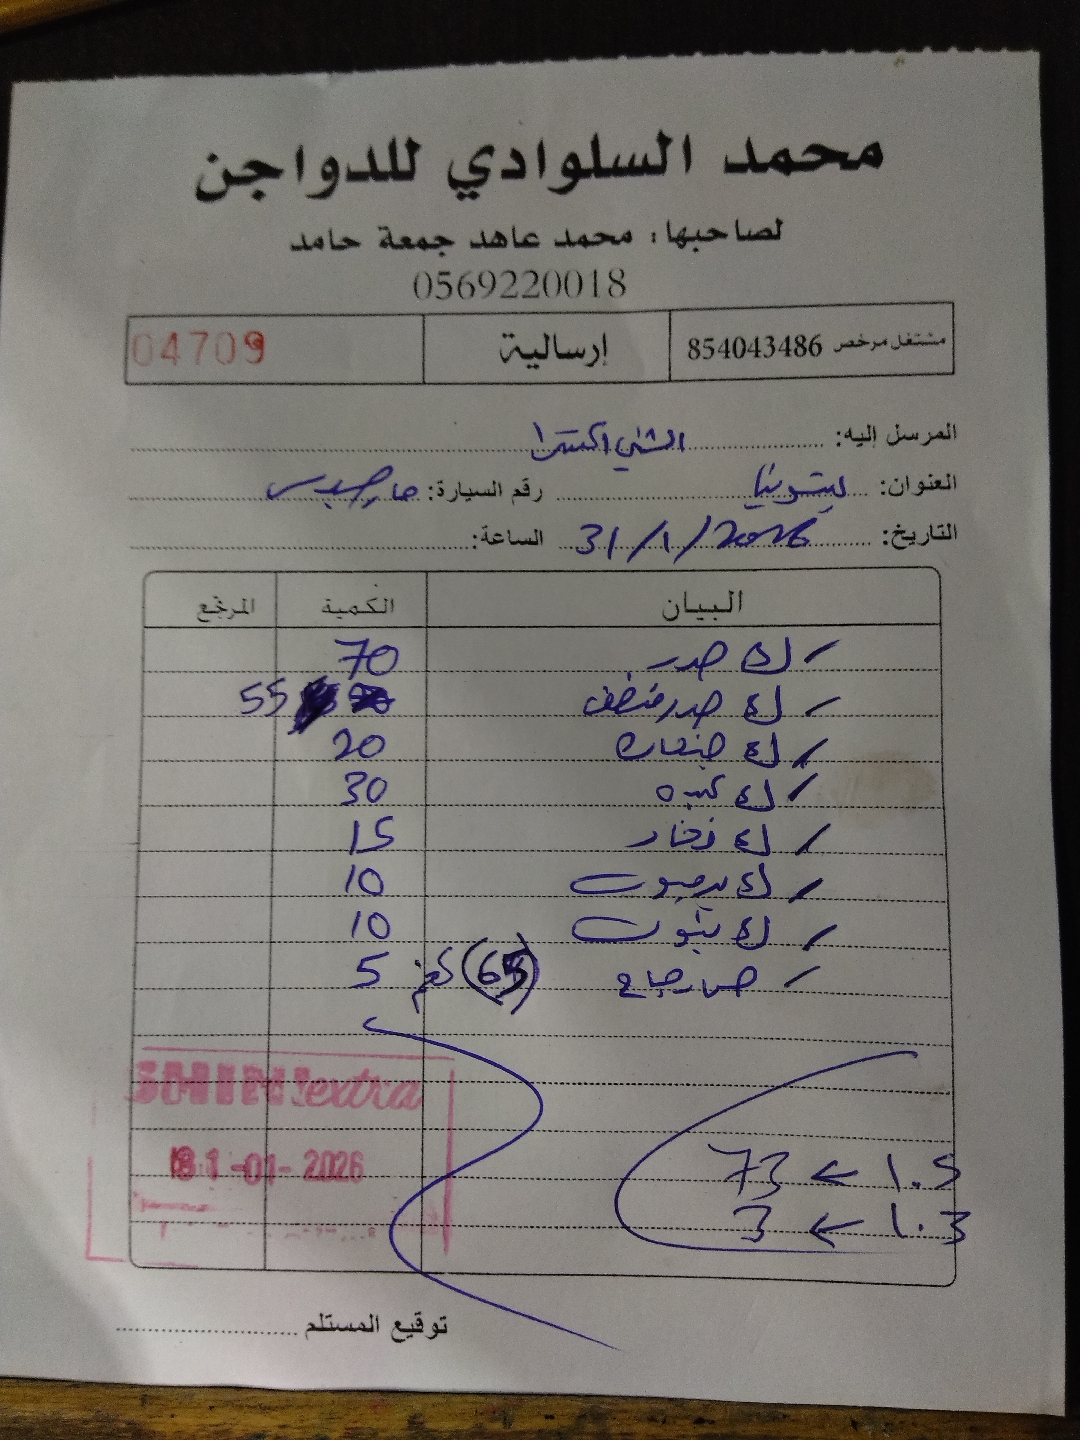 محمد السلوادي للدواجن
لصاحبها: محمد عاهد جمعة حامد
0569220018
مشتغل مرخص 854043486 إرسالية 04709
المرسل إليه: الشني اكسترا
العنوان: بيتونيا رقم السيارة:
التاريخ: 31/1/2026 الساعة:
البيان الكمية المرتجع
ك صدر 70
ك صدر منظف 55
ك جنحات 20
ك كبده 30
ك فخاد 15
ك 10
ك 10
دجاج (65) كغم 5
SHINI extra
31-01-2026
1.5 ← 73
1.3 ← 3
توقيع المستلم